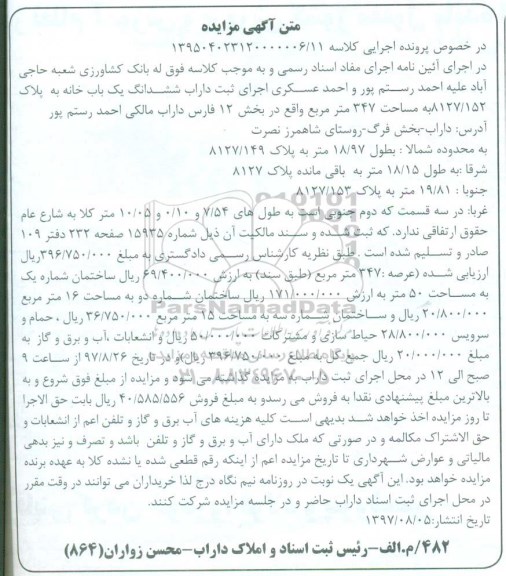 متن آگهی مزایده
در خصوص پرونده اجرایی کلاسه ۱۳۹۵۰۴۰۲۳۱۲۰۰۰۰۰۰۶/۱۱
در اجرای آئین نامه اجرای مفاد اسناد رسمی و به موجب کلاسه فوق له بانک کشاورزی شعبه حاجی
آباد علیه احمد رستم پور و احمد عسکری اجرای ثبت داراب ششدانگ یک باب خانه به پلاک
۸۱۲۷/۱۵۲به مساحت ۳۴۷ متر مربع واقع در بخش ۱۲ فارس داراب مالکی احمد رستم پور
آدرس: داراب-بخش فرگ-روستای شاهمرز نصرت
به محدوده شمالا : بطول ۱۸/۹۷ متر به پلاک ۸۱۲۷/۱۴۹
شرقا :به طول ۱۸/۱۵ متر به باقی مانده پلاک ۸۱۲۷
جنوبا : ۱۹/۸۱ متر به پلاک ۸۱۲۷/۱۵۳
غربا: در سه قسمت که دوم جنوبی است به طول های ۷/۵۴ و ۰/۱۰ و ۱۰/۰۵ متر کلا به شارع عام
حقوق ارتفاقی ندارد. که ثبت شده و سند مالکیت آن ذیل شماره ۱۵۹۳۵ صفحه ۲۳۲ دفتر ۱۰۹
صادر و تسلیم شده است .طبق نظریه کارشناس رسمی دادگستری به مبلغ ۳۹۶/۷۵۰/۰۰۰ریال
ارزیابی شده (عرصه :۳۴۷ متر مربع (طبق سند) به ارزش ۶۹/۴۰۰/۰۰۰ ریال ساختمان شماره یک
به مساحت ۵۰ متر به ارزش ۱۷۱/۰۰۰/۰۰۰ ریال ساختمان شماره دو به مساحت ۱۶ متر مربع
۲۰/۸۰۰/۰۰۰ ریال و ساختمان شماره سه به مساحت ۱۵ متر مربع ۳۶/۷۵۰/۰۰۰ ریال ، حمام و
سرویس ۲۸/۸۰۰/۰۰۰ حیاط سازی و مشترکات ۵۰/۰۰۰/۰۰۰ ریال و انشعابات ،آب و برق و گاز به
مبلغ ۲۰/۰۰۰/۰۰۰ ریال جمع کل به مبلغ ۳۹۶/۷۵۰/۰۰۰ ریال)و در تاریخ ۹۷/۸/۲۶ از ساعت ۹
صبح الی ۱۲ در محل اجرای ثبت داراب به مزایده گذاشته می شود و مزایده از مبلغ فوق شروع و به
بالاترین مبلغ پیشنهادی نقدا به فروش می رسدو به مبلغ فروش ۴۰/۵۸۵/۵۵۶ ریال بابت حق الاجرا
تا روز مزایده اخذ خواهد شد بدیهی است کلیه هزینه های آب برق و گاز و تلفن اعم از انشعابات و
حق الاشتراک مکالمه و در صورتی که ملک دارای آب و برق و گاز و تلفن باشد و تصرف و نیز بدهی
مالیاتی و عوارض شهرداری تا تاریخ مزایده اعم از اینکه رقم قطعی شده یا نشده کلا به عهده برنده
مزایده خواهد بود. این آگهی یک نوبت در روزنامه نیم نگاه درج لذا خریداران می توانند در وقت مقرر
در محل اجرای ثبت اسناد داراب حاضر و در جلسه مزایده شرکت کنند.
تاریخ انتشار:۱۳۹۷/۰۸/۰۵
۴۸۲/م.الف-رئیس ثبت اسناد و املاک داراب-محسن زواران(۸۶۴)
ParsNamadData